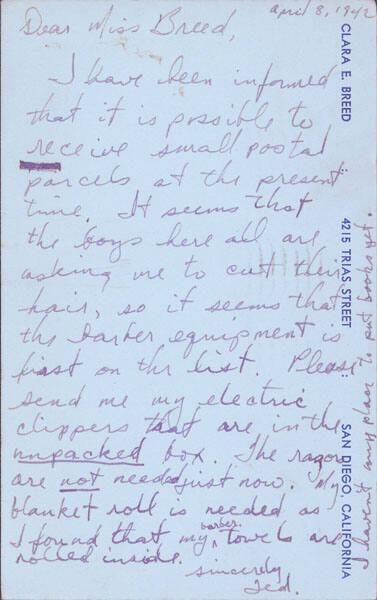 april 8, 1942
Dear Miss Breed,
I have been informed
that it is possible to
receive small postal
parcels at the present
time. It seems that
the boys here all are
asking me to cut their
hair, so it seems that
the barber equipment is
first on the list. Please
send me my electric
clippers that are in the
unpacked box. The razors
are not needed just now. My
blanket roll is needed as
I found that my barber towels are
rolled inside.
sincerely
Ted.
CLARA E. BREED : 4215 TRIAS STREET : SAN DIEGO, CALIFORNIA